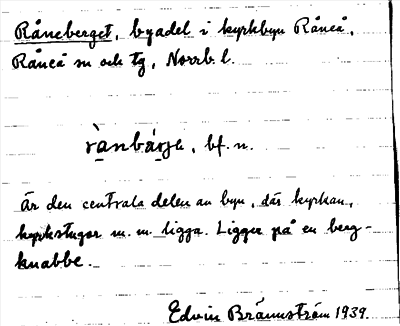 Råneberget, byadel i kyrkbyn Råneå,
Råneå sn och tg, Norrb. l.
rànbárje, bf. n.
Är den centrala delen av byn, där kyrkan,
kyrkstugor m. m. ligga. Ligger på en berg-
knabbe.
Edvin Brännström 1939.